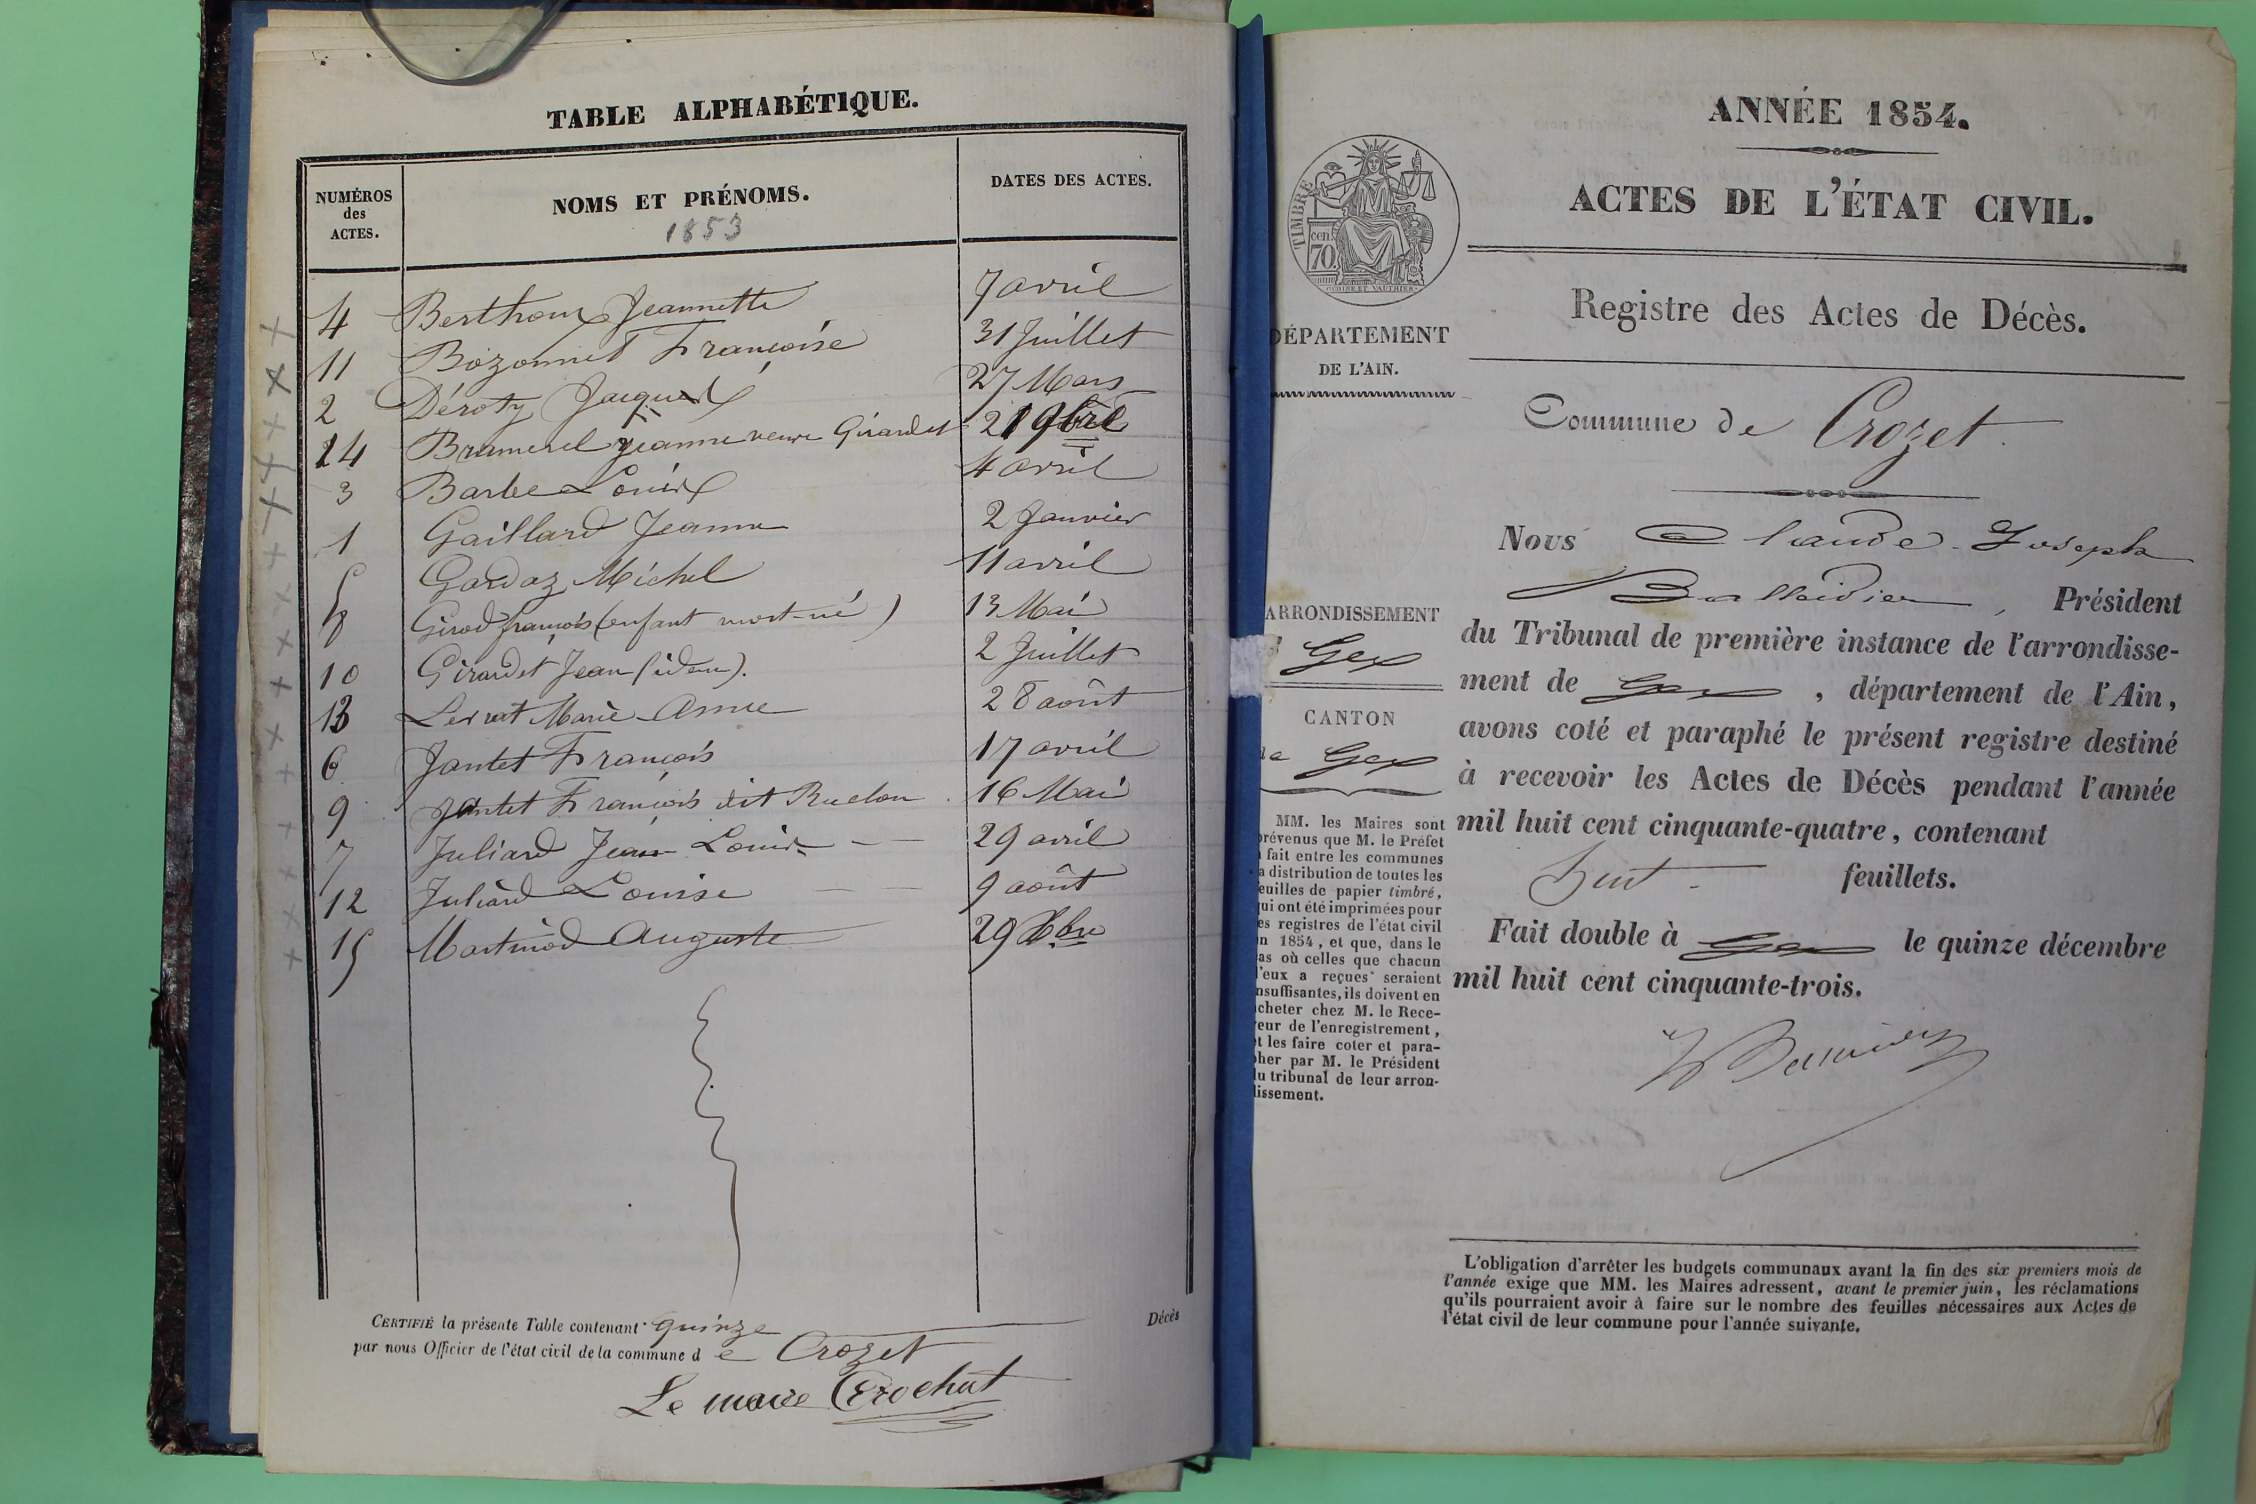 TABLE ALPHABÉTIQUE.
NUMÉROS des ACTES.
NOMS ET PRÉNOMS.
1853
DATES DES ACTES.
4 Berthoux Jeannette 7 avril
11 Bozonnet Françoise 31 Juillet
2 Déroty Jacques 27 Mars
14 Brumerel Jeanne veuve Girardet 21 9bre
3 Barbe Louis 4 avril
1 Gaillard Jeanne 2 Janvier
5 Gardaz Michel 11 avril
8 Girod françois (enfant mort-né) 13 Mai
10 Girardet Jean (idem). 2 Juillet
13 Levrat Marie Anne 28 août
6 Jantet François 17 avril
9 Jantet François dit Ruclon 16 Mai
7 Juliard Jean Louis 29 avril
12 Juliard Louise 9 août
15 Martinod Auguste 29 Xbre
CERTIFIÉ la présente Table contenant quinze Décès
par nous Officier de l'état civil de la commune d e Crozet
Le maire Crochat
ANNÉE 1854.
ACTES DE L'ÉTAT CIVIL.
TIMBRE
70 cen.
Registre des Actes de Décès.
DÉPARTEMENT
DE L'AIN.
Commune de Crozet.
ARRONDISSEMENT
Gex
CANTON
de Gex
MM. les Maires sont
prévenus que M. le Préfet
a fait entre les communes
la distribution de toutes les
feuilles de papier timbré,
qui ont été imprimées pour
les registres de l'état civil
en 1854, et que, dans le
cas où celles que chacun
d'eux a reçues seraient
insuffisantes, ils doivent en
acheter chez M. le Rece-
veur de l'enregistrement,
et les faire coter et para-
pher par M. le Président
du tribunal de leur arron-
dissement.
Nous Claude-Joseph
Balleidier, Président
du Tribunal de première instance de l'arrondisse-
ment de Gex, département de l'Ain,
avons coté et paraphé le présent registre destiné
à recevoir les Actes de Décès pendant l'année
mil huit cent cinquante-quatre, contenant
huit feuillets.
Fait double à Gex le quinze décembre
mil huit cent cinquante-trois.
L'obligation d'arrêter les budgets communaux avant la fin des six premiers mois de
l'année exige que MM. les Maires adressent, avant le premier juin, les réclamations
qu'ils pourraient avoir à faire sur le nombre des feuilles nécessaires aux Actes de
l'état civil de leur commune pour l'année suivante.